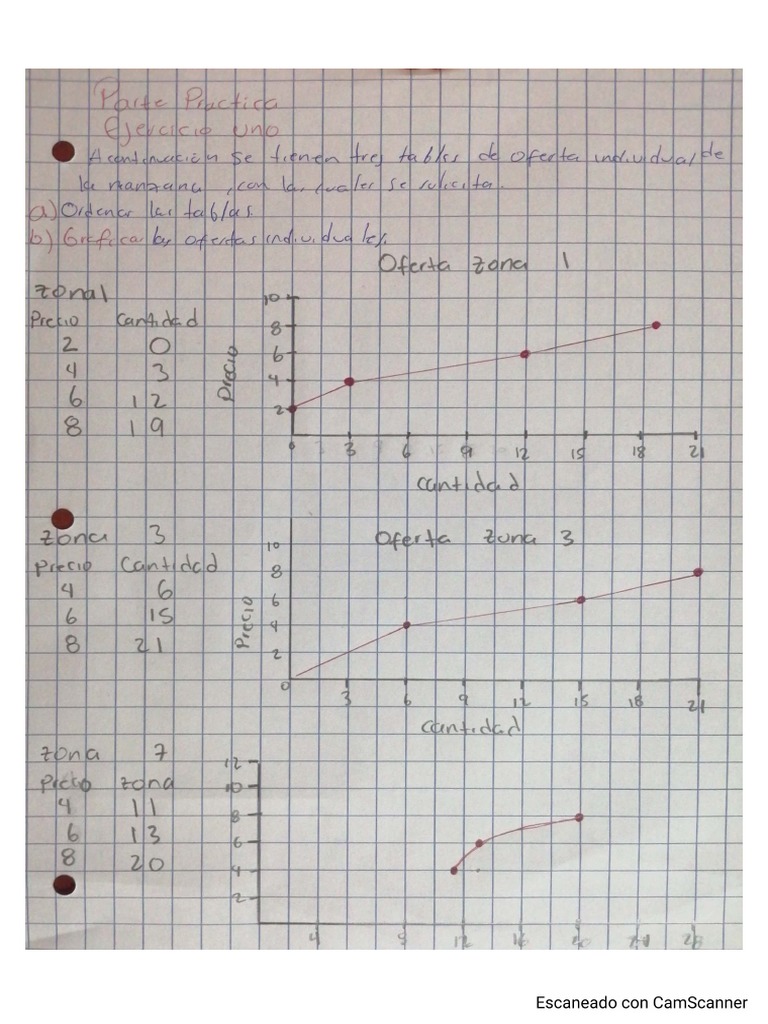 Parte Practica
Ejercicio uno
A continuación se tienen tres tablas de oferta individual de
la manzana, con las cuales se solicita.
a) Ordenar las tablas.
b) Grafica las ofertas individuales.
Oferta zona 1
zona 1
Precio Cantidad
2 0
4 3
6 12
8 19
Precio
10
8
6
4
2
0 3 6 9 12 15 18 21
Cantidad
zona 3
Precio Cantidad
4 6
6 15
8 21
Oferta zona 3
Precio
10
8
6
4
2
0 3 6 9 12 15 18 21
Cantidad
zona 7
Precio zona
4 11
6 13
8 20
12
10
8
6
4
2
4 12 16 20 28
Escaneado con CamScanner